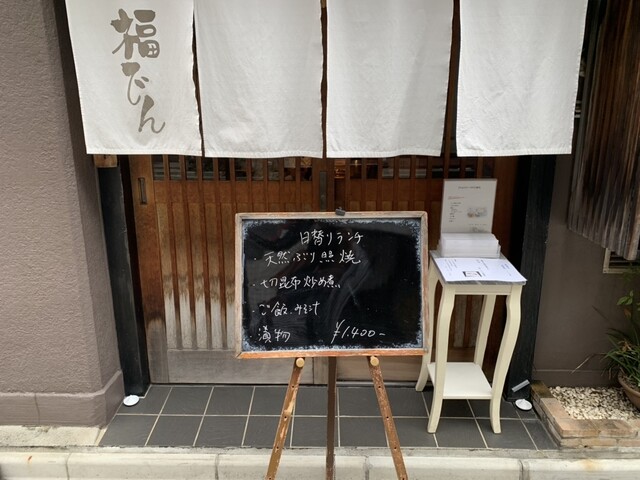 福でん
日替りランチ
・天然ぶり照焼
・切昆布炒め煮
・ご飯、みそ汁
漬物 ¥1.400-